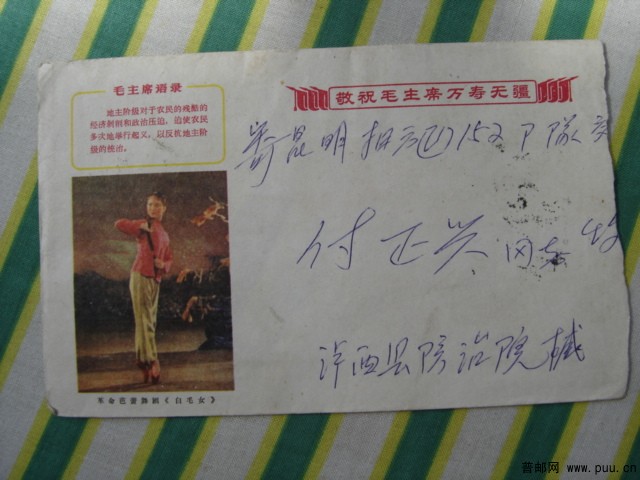 毛主席语录
地主阶级对于农民的残酷的
经济剥削和政治压迫，迫使农民
多次地举行起义，以反抗地主阶
级的统治。
敬祝毛主席万寿无疆
寄昆明 152 队
付正兴同志收
泸西县防治院
革命芭蕾舞剧《白毛女》
普邮网 www.puu.cn